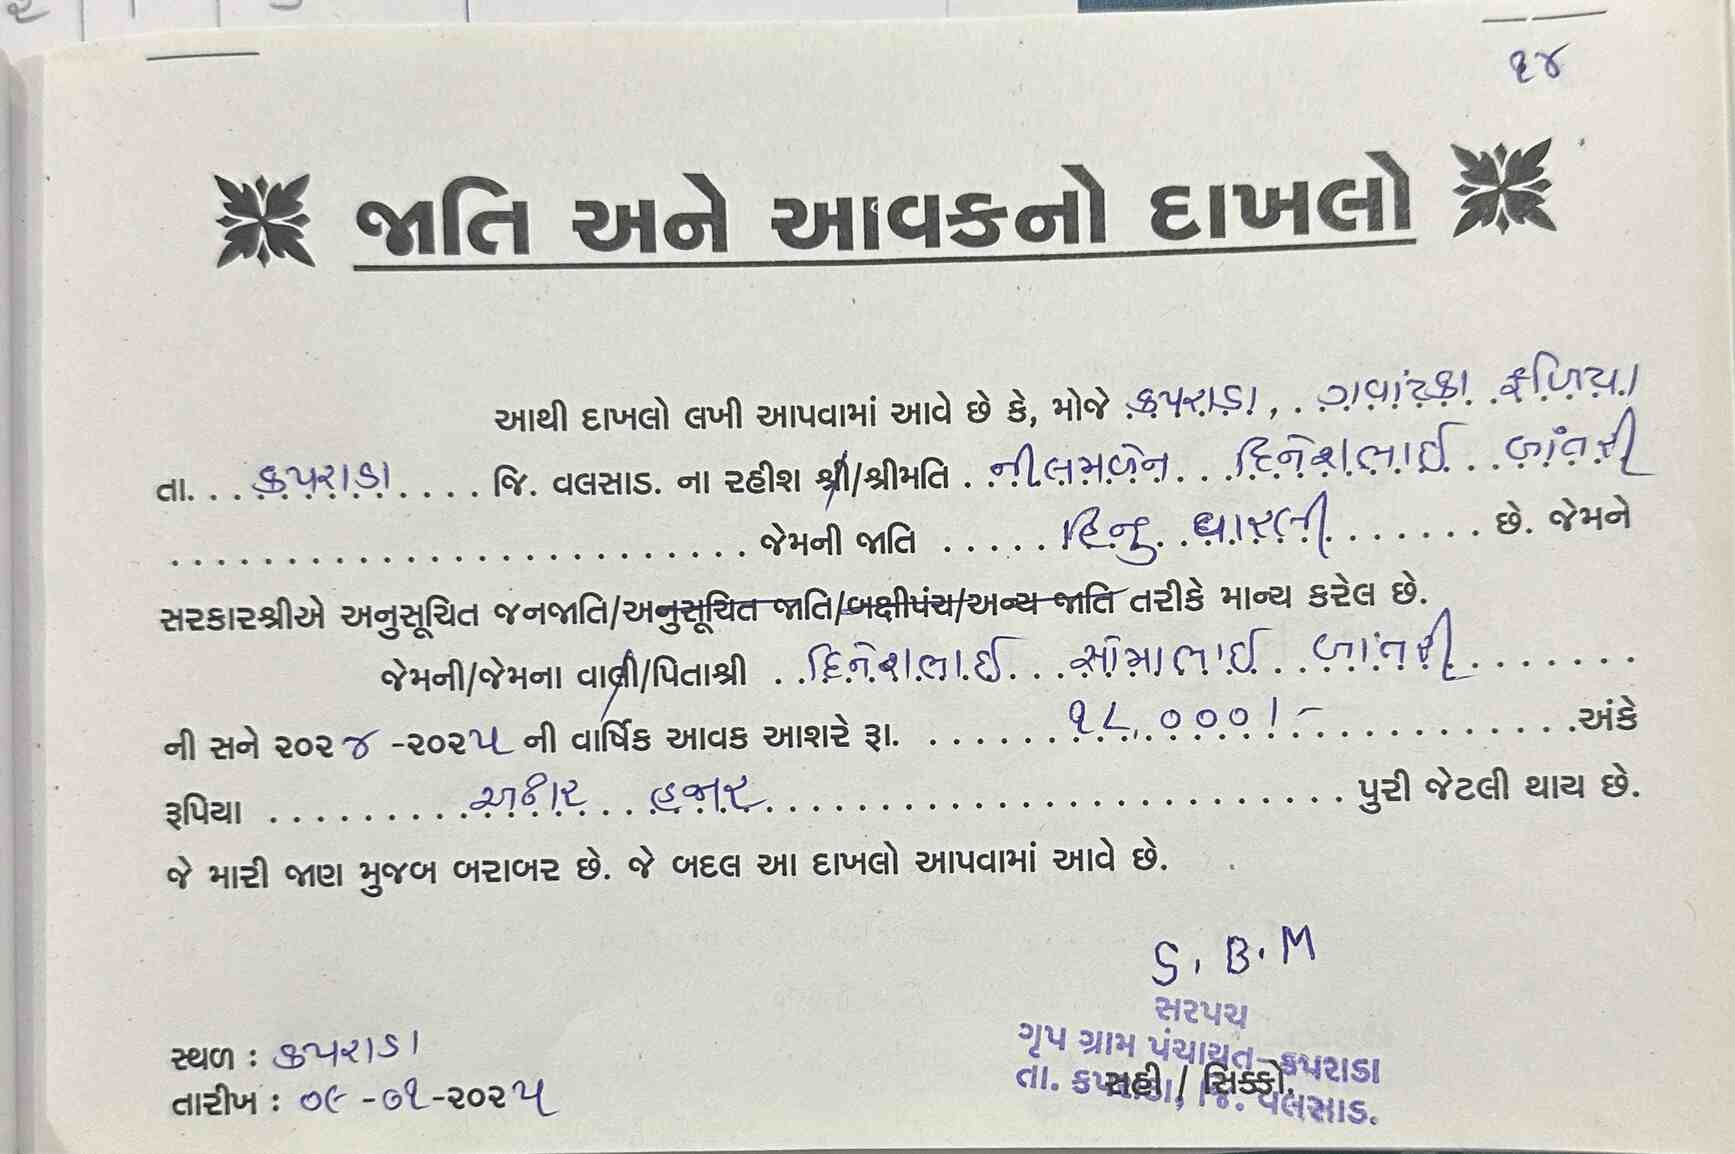 ૧૪
જાતિ અને આવકનો દાખલો
આથી દાખલો લખી આપવામાં આવે છે કે, મોજે કપરાડા, ગવાંટકા ફળિયા
તા. કપરાડા જિ. વલસાડ. ના રહીશ શ્રી/શ્રીમતિ નીલમબેન દિનેશભાઈ બાંતરી
જેમની જાતિ હિન્દુ વારલી છે. જેમને
સરકારશ્રીએ અનુસૂચિત જનજાતિ/અનુસૂચિત જાતિ/બક્ષીપંચ/અન્ય જાતિ તરીકે માન્ય કરેલ છે.
જેમની/જેમના વાલી/પિતાશ્રી દિનેશભાઈ સોમાભાઈ બાંતરી
ની સને ૨૦૨૪ -૨૦૨૫ ની વાર્ષિક આવક આશરે રૂા. ૧૮,૦૦૦/- અંકે
રૂપિયા અઢાર હજાર પુરી જેટલી થાય છે.
જે મારી જાણ મુજબ બરાબર છે. જે બદલ આ દાખલો આપવામાં આવે છે.
S. B. M
સરપચ
ગૃપ ગ્રામ પંચાયત-કપરાડા
તા. કપરાડા, જિ. વલસાડ.
સહી / સિક્કો.
સ્થળ : કપરાડા
તારીખ : ૦૯ -૦૧-૨૦૨૫